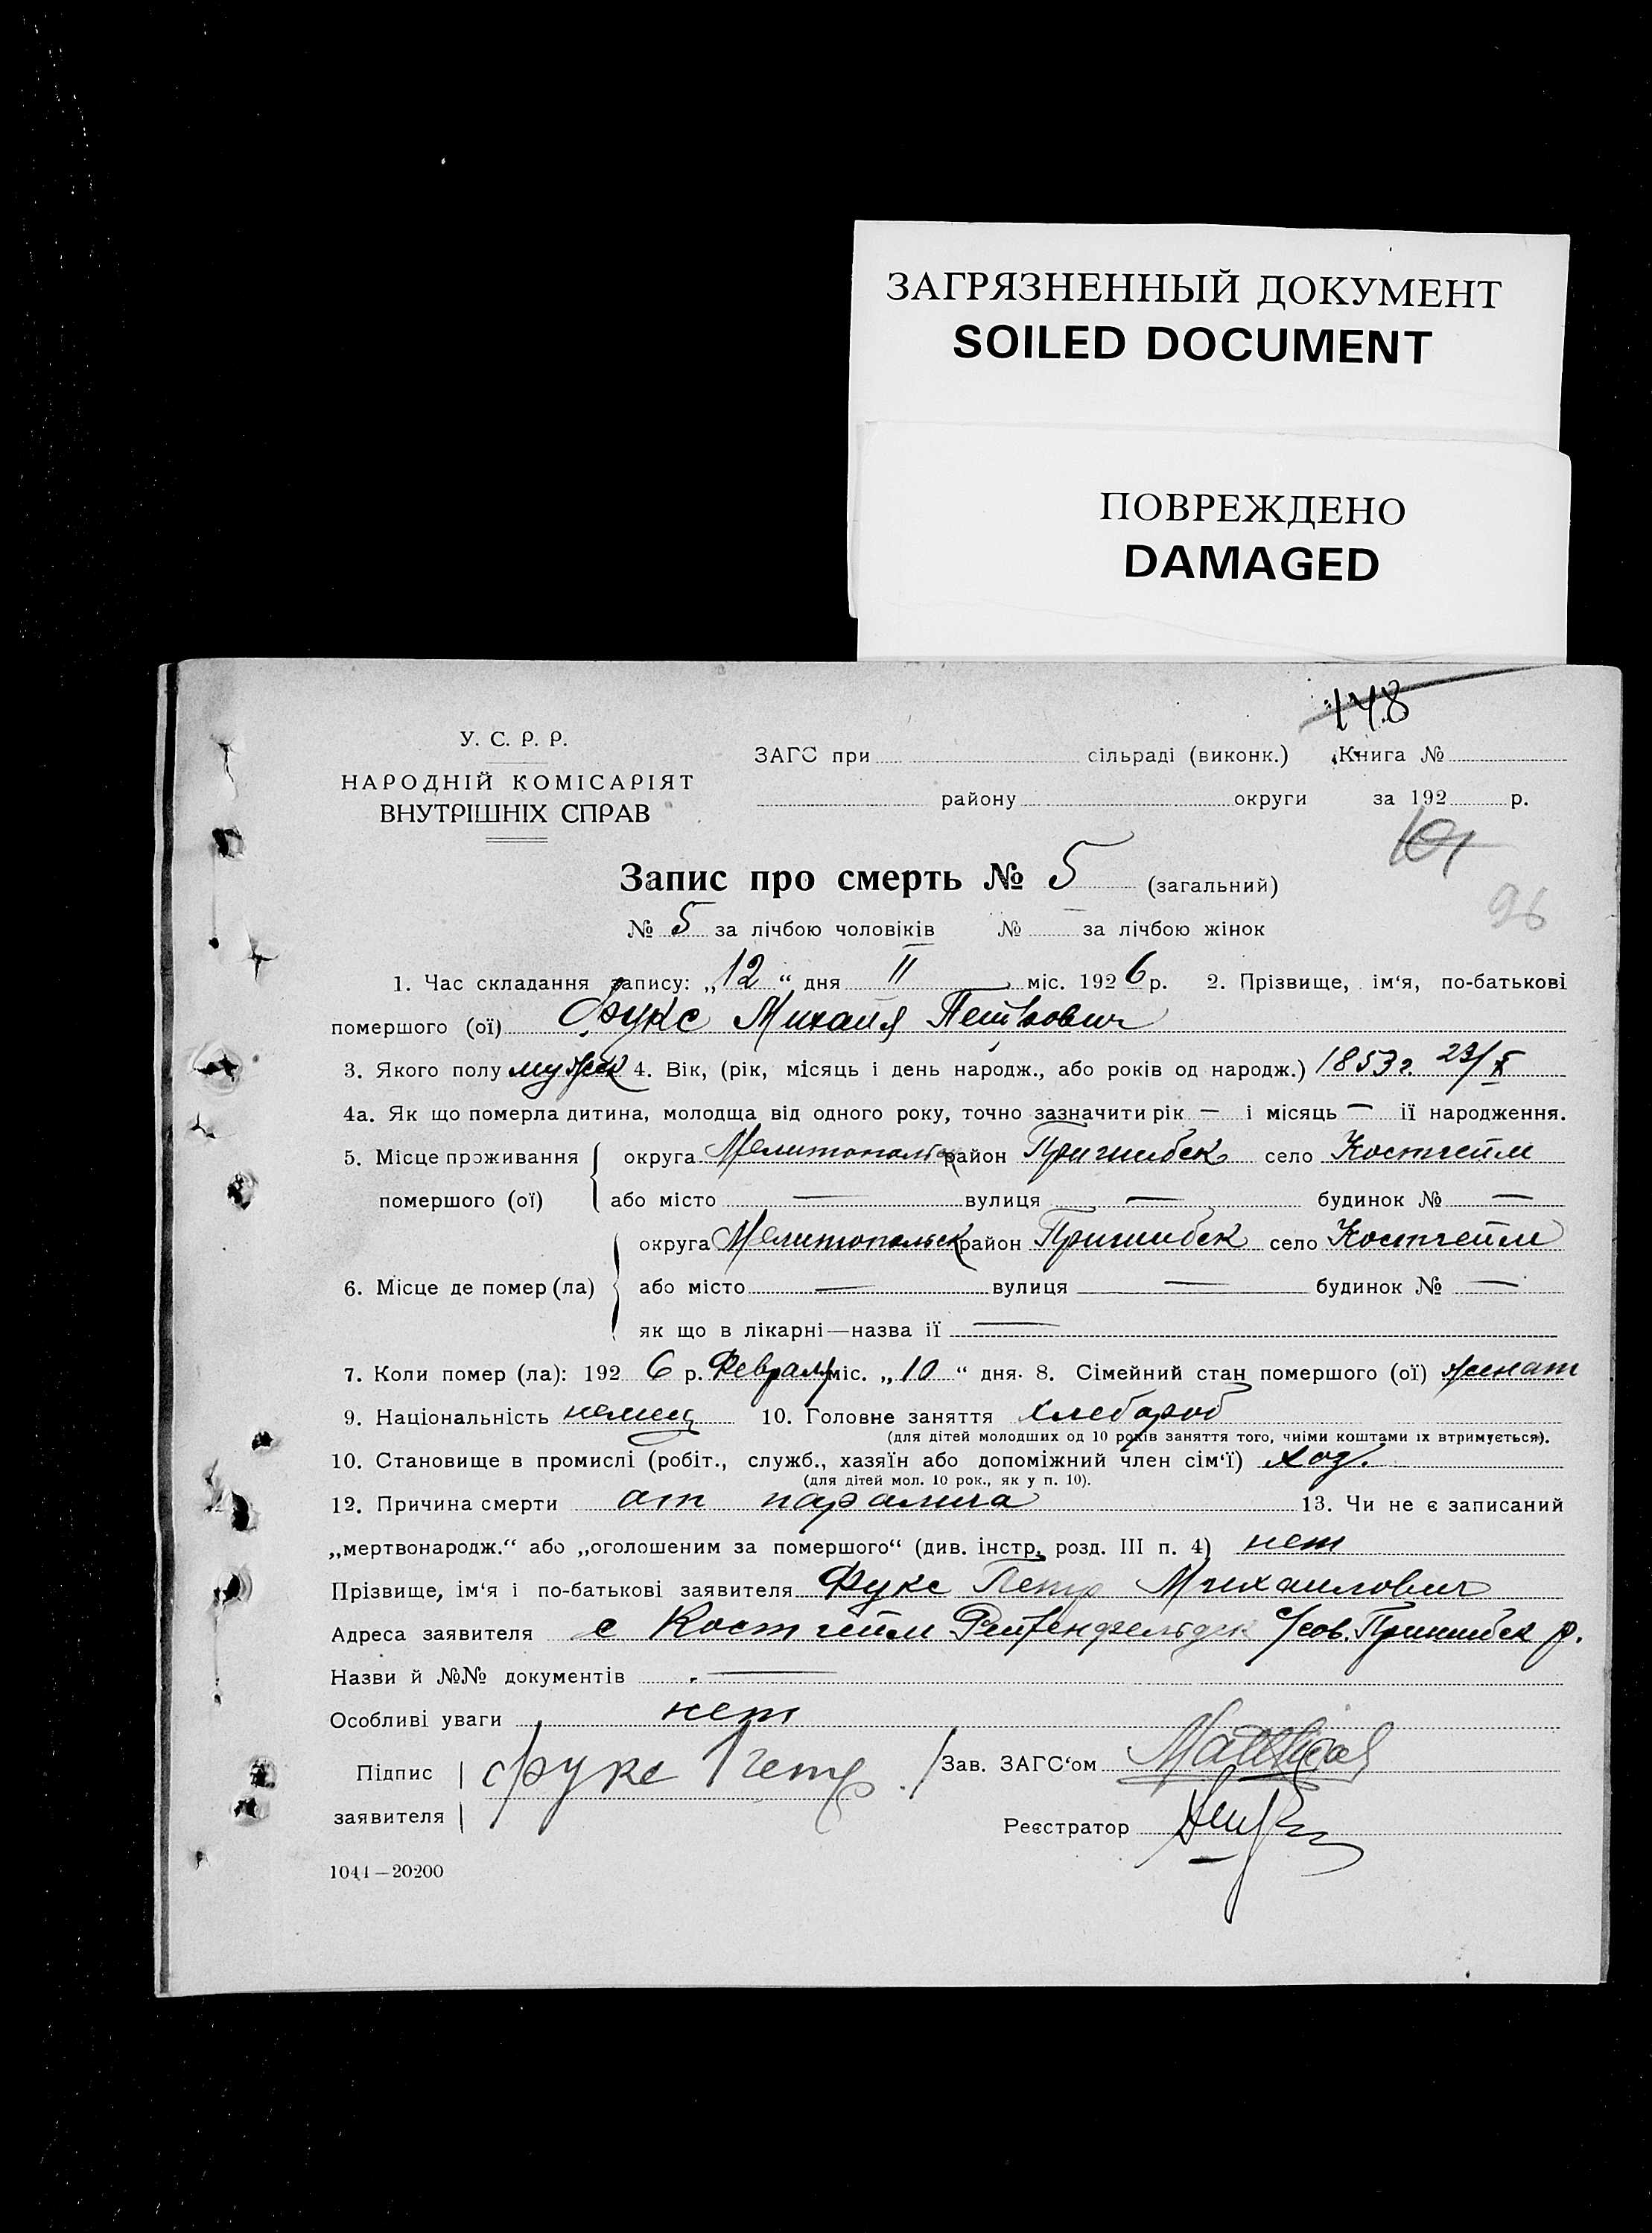 ЗАГРЯЗНЕННЫЙ ДОКУМЕНТ
SOILED DOCUMENT
ПОВРЕЖДЕНО
DAMAGED
148
У. С. Р. Р.
НАРОДНІЙ КОМІСАРІЯТ
ВНУТРІШНІХ СПРАВ
ЗАГС при сільраді (виконк.) Книга №
району округи за 192 р.
96
Запис про смерть № 5 (загальний)
№ 5 за лічбою чоловіків № — за лічбою жінок
1. Час складання запису: „12“ дня II міс. 1926 р. 2. Прізвище, ім‘я, по-батькові
помершого (ої) Фукс Михаил Петрович
3. Якого полу мужск 4. Вік, (рік, місяць і день народж., або років од народж.) 1853 г. 23/X
4а. Як що померла дитина, молодща від одного року, точно зазначити рік — і місяць — її народження.
5. Місце проживання округа Мелитопольск район Пришибск село Костгейм
помершого (ої) або місто — вулиця — будинок № —
округа Мелитопольск район Пришибск село Костгейм
6. Місце де помер (ла) або місто — вулиця — будинок № —
як що в лікарні—назва її —
7. Коли помер (ла): 1926 р. Февраля міс. „10“ дня. 8. Сімейний стан помершого (ої) женат
9. Національність немец 10. Головне заняття хлебороб
(для дітей молодших од 10 років заняття того, чиїми коштами їх втримується).
10. Становище в промислі (робіт., служб., хазяїн або допоміжний член сім‘ї) хоз.
(для дітей мол. 10 рок., як у п. 10).
12. Причина смерти от паралича 13. Чи не є записаний
„мертвонародж.“ або „оголошеним за помершого“ (див. інстр. розд. III п. 4) нет
Прізвище, ім‘я і по-батькові заявителя Фукс Петр Михаилович
Адреса заявителя с Костгейм с/сов. Пришибск р.
Назви й №№ документів —
Особливі уваги нет
Підпис заявителя Фукс Петр Зав. ЗАГС‘ом
Реєстратор
1041—20200